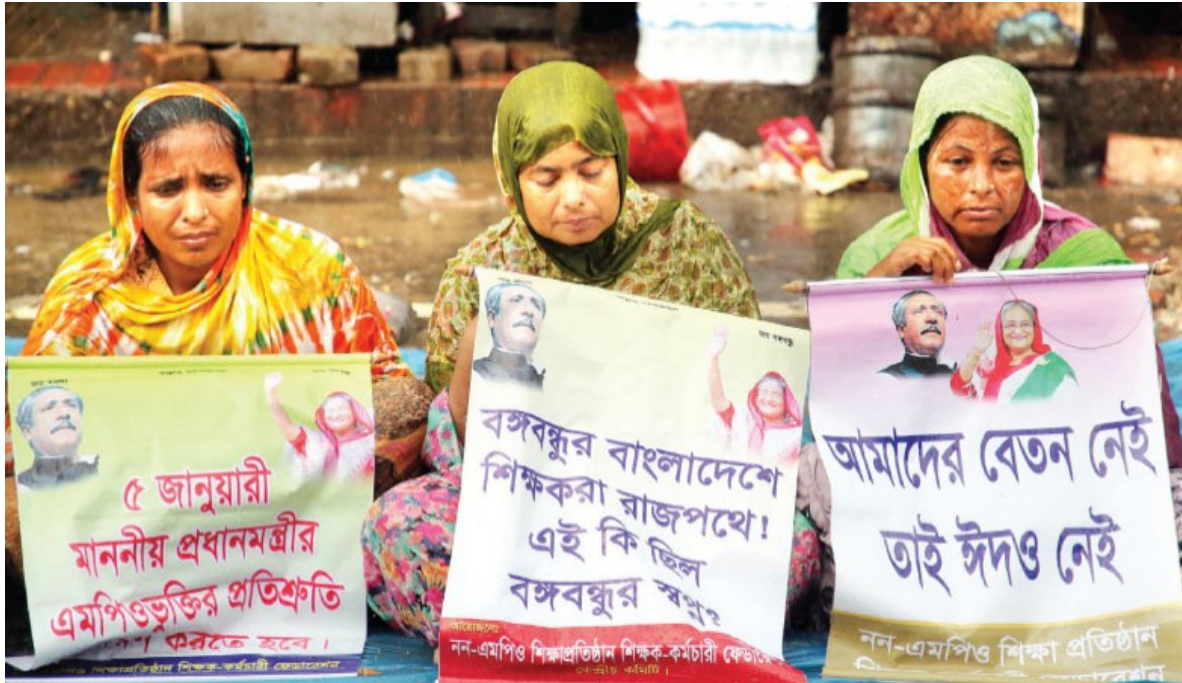 জয় বাংলা
৫ জানুয়ারী
মাননীয় প্রধানমন্ত্রীর
এমপিওভুক্তির প্রতিশ্রুতি
করতে হবে।
শিক্ষাপ্রতিষ্ঠান শিক্ষক-কর্মচারী ফেডারেশন
জয় বঙ্গবন্ধু
বঙ্গবন্ধুর বাংলাদেশে
শিক্ষকরা রাজপথে!
এই কি ছিল
বঙ্গবন্ধুর স্বপ্ন?
আয়োজনেঃ
নন-এমপিও শিক্ষাপ্রতিষ্ঠান শিক্ষক-কর্মচারী
কেন্দ্রীয় কমিটি।
আমাদের বেতন নেই
তাই ঈদও নেই
নন-এমপিও শিক্ষা প্রতিষ্ঠান